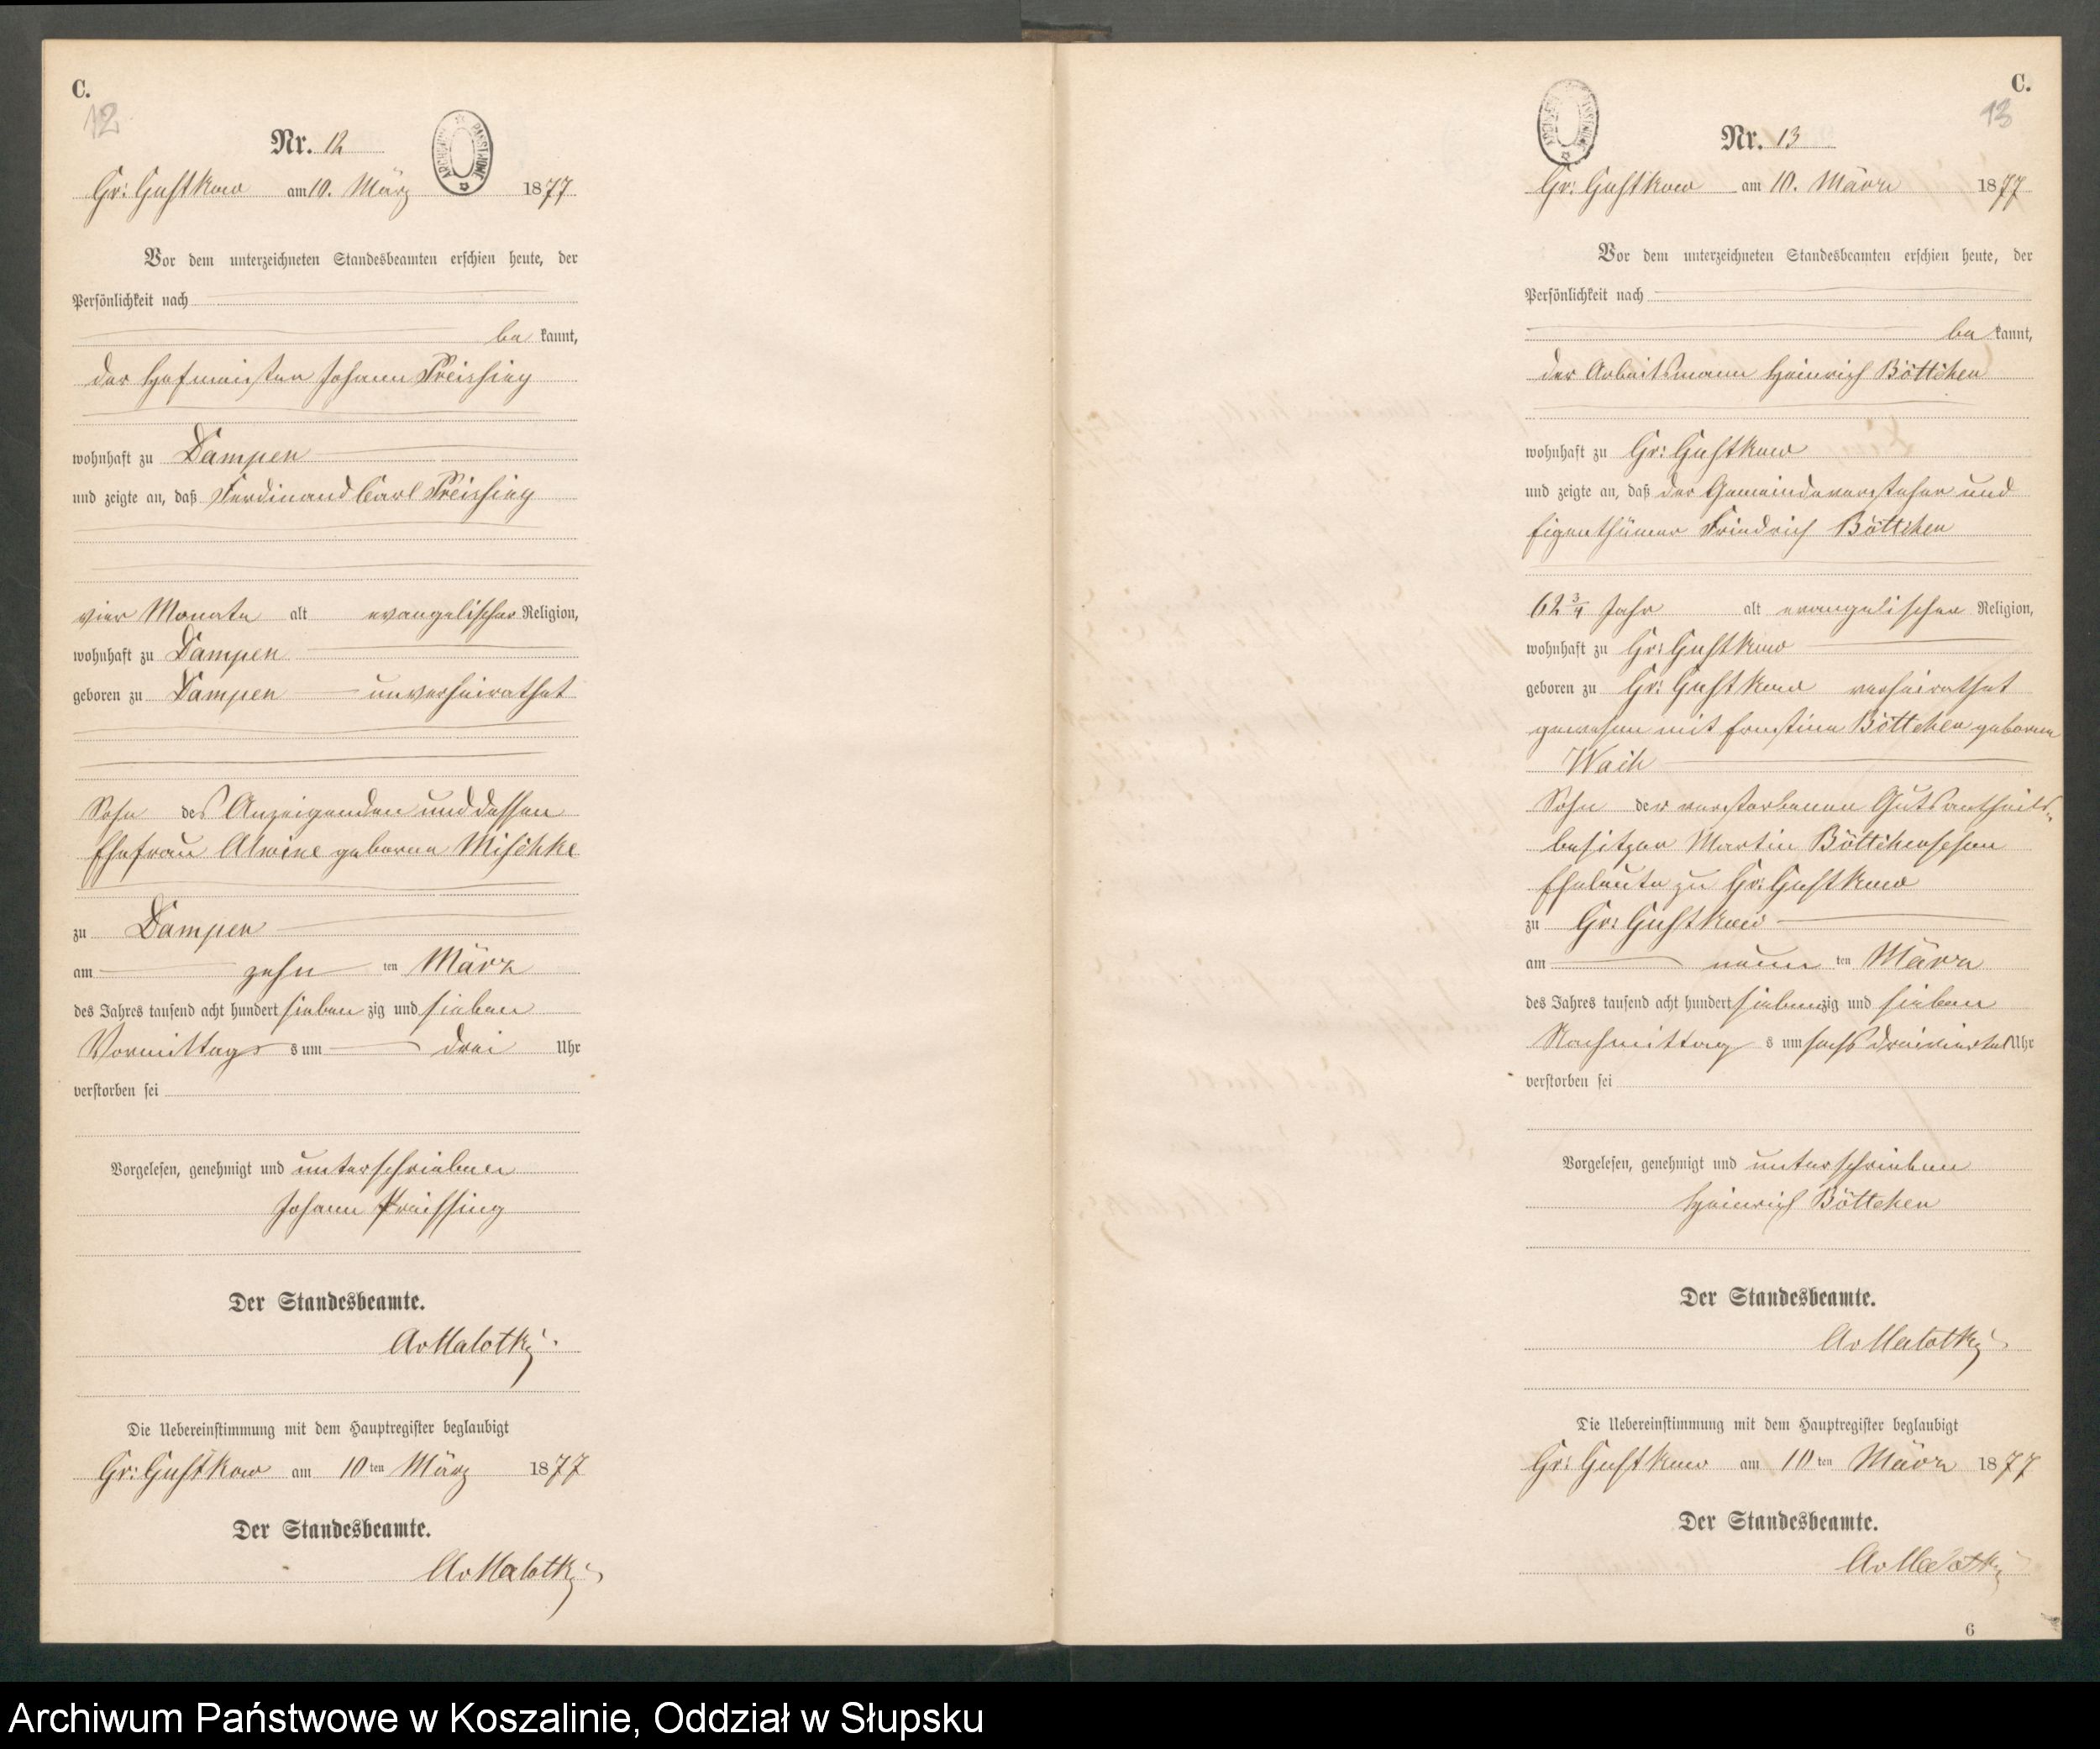 C.
12
Nr. 12
Gr: Gustkow am 10. März 1877
Vor dem unterzeichneten Standesbeamten erschien heute, der
Persönlichkeit nach
be kannt,
der Hofmeister Johann Preissing
wohnhaft zu Dampen
und zeigte an, daß Ferdinand Carl Preissing
vier Monate alt evangelischer Religion,
wohnhaft zu Dampen
geboren zu Dampen unverheirathet
Sohn des Anzeigenden und dessen
Ehefrau Alwine geborne Mischke
zu Dampen
am zehn ten März
des Jahres tausend acht hundert sieben zig und sieben
Vormittags s um drei Uhr
verstorben sei
Vorgelesen, genehmigt und unterschrieben
Johann Preissing
Der Standesbeamte.
AvMalotky
Die Uebereinstimmung mit dem Hauptregister beglaubigt
Gr: Gustkow am 10ten März 1877
Der Standesbeamte.
AvMalotky
C.
13
Nr. 13
Gr: Gustkow am 10. März 1877
Vor dem unterzeichneten Standesbeamten erschien heute, der
Persönlichkeit nach
be kannt,
der Arbeitsmann Heinrich Böttcher
wohnhaft zu Gr: Gustkow
und zeigte an, daß der Gemeindevorsteher und
Eigenthümer Friedrich Böttcher
62 3/4 Jahr alt evangelischer Religion,
wohnhaft zu Gr: Gustkow
geboren zu Gr: Gustkow verheirathet
gewesen mit Ernstine Böttcher geborne
Sohn der verstorbenen Gutsantheils-
besitzer Martin Böttcherschen
Eheleute zu Gr: Gustkow
zu Gr: Gustkow
am neun ten März
des Jahres tausend acht hundert siebenzig und sieben
Nachmittag s um sechs dreiviertel Uhr
verstorben sei
Vorgelesen, genehmigt und unterschrieben
Heinrich Böttcher
Der Standesbeamte.
AvMalotky
Die Uebereinstimmung mit dem Hauptregister beglaubigt
Gr: Gustkow am 10ten März 1877
Der Standesbeamte.
AvMalotky
6
Archiwum Państwowe w Koszalinie, Oddział w Słupsku